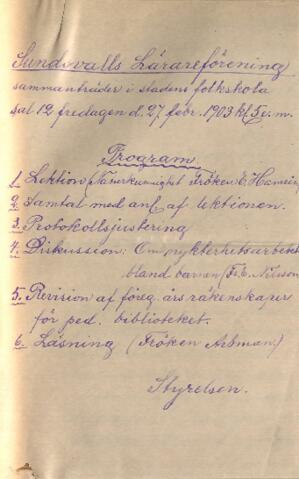 Sundsvalls Lärareförening
sammanträder i stadens folkskola
sal 12 fredagen d. 27 febr. 1903 kl. 5 e. m.
Program
1. Lektion (Naturkunnighet Fröken E.
2. Samtal med anl. af lektionen.
3. Protokollsjustering
4. Diskussion: Om nykterhetsarbetet
bland barnen (Fr. E. Nilsson
5. Revision af föreg. års räkenskaper
för ped. biblioteket.
6. Läsning (Fröken Arbman.)
Styrelsen.